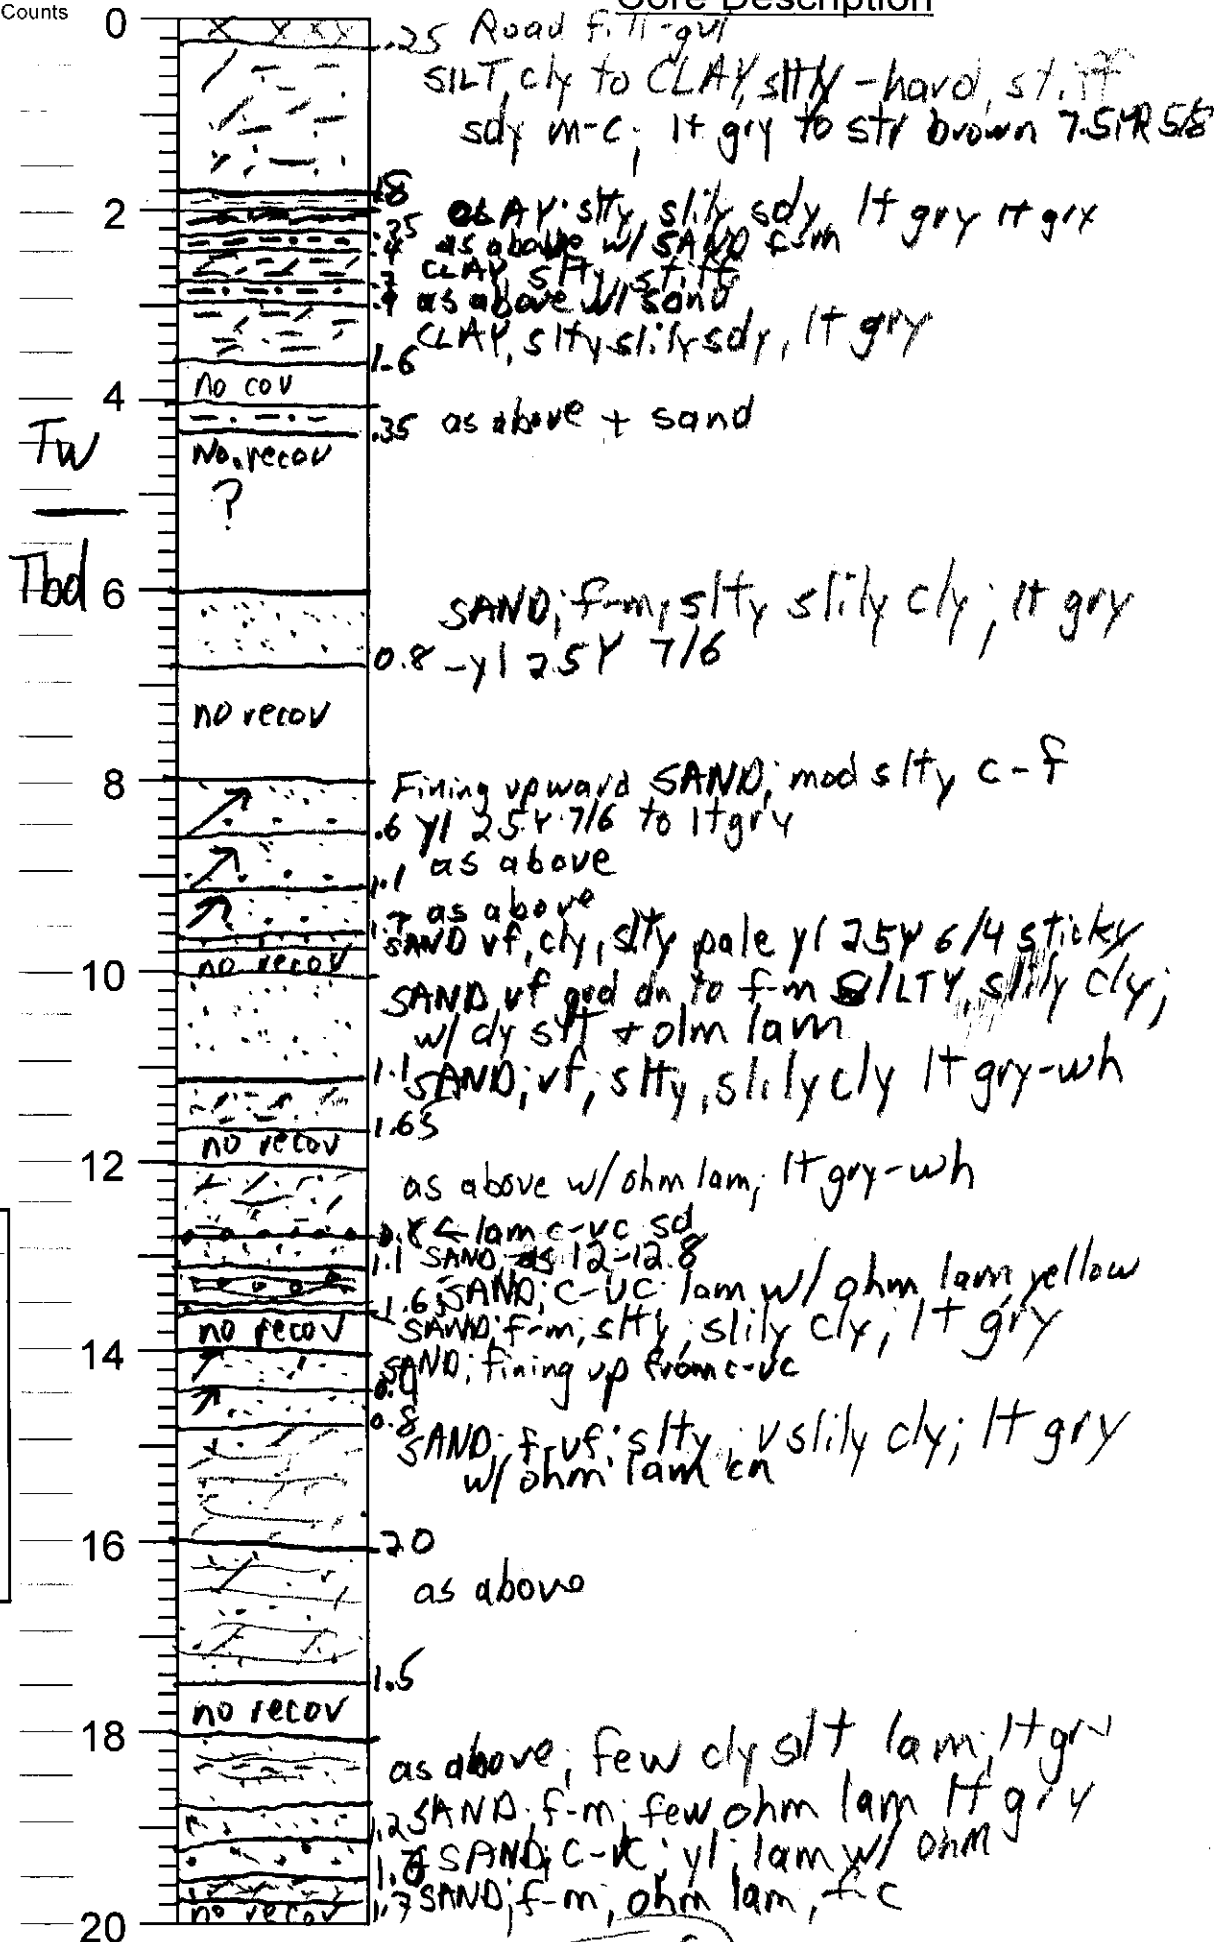 Counts
Core Description
0
.25 Road fill-gvl
SILT, cly to CLAY, slty -hard, stiff
sdy m-c; lt gry to str brown 7.5YR 5/8
1.8
2
CLAY: slty, slily sdy, lt gry
.25
.4 as above w/ SAND f-m
CLAY, slty, stiff
.7
.9 as above w/ sand
CLAY, slty slily sdy, lt gry
1.6
no cov
4
.35 as above + sand
Tw
No. recov
?
Tbd
6
SAND; f-m, slty slily cly; lt gry
0.8 -yl 2.5Y 7/6
no recov
8
Fining upward SAND; mod slty c-f
.6 yl 2.5Y 7/6 to lt gry
as above
1.1
as above
1.7
SAND vf, cly, slty pale yl 2.5Y 6/4 sticky
no recov
10
SAND vf grd dn to f-m SILTY, slily cly;
w/ cly slt + olm lam
1.1 SAND; vf, slty, slily cly lt gry-wh
1.65
no recov
12
as above w/ ohm lam; lt gry-wh
0.8 ← lam c-vc sd
1.1 SAND as 12-12.8
SAND; c-vc lam w/ ohm lam yellow
1.65
no recov
SAND; f-m, slty, slily cly; lt gry
14
SAND; fining up from c-vc
0.4
0.8
SAND; f-vf; slty, v slily cly; lt gry
w/ ohm lam cn
16
20
as above
1.5
no recov
18
as above; few cly slt lam; lt gry
1.2 SAND; f-m; few ohm lam lt gry
SAND; c-vc; yl; lam w/ ohm
1.7 SAND; f-m, ohm lam, f-c
no recov
20